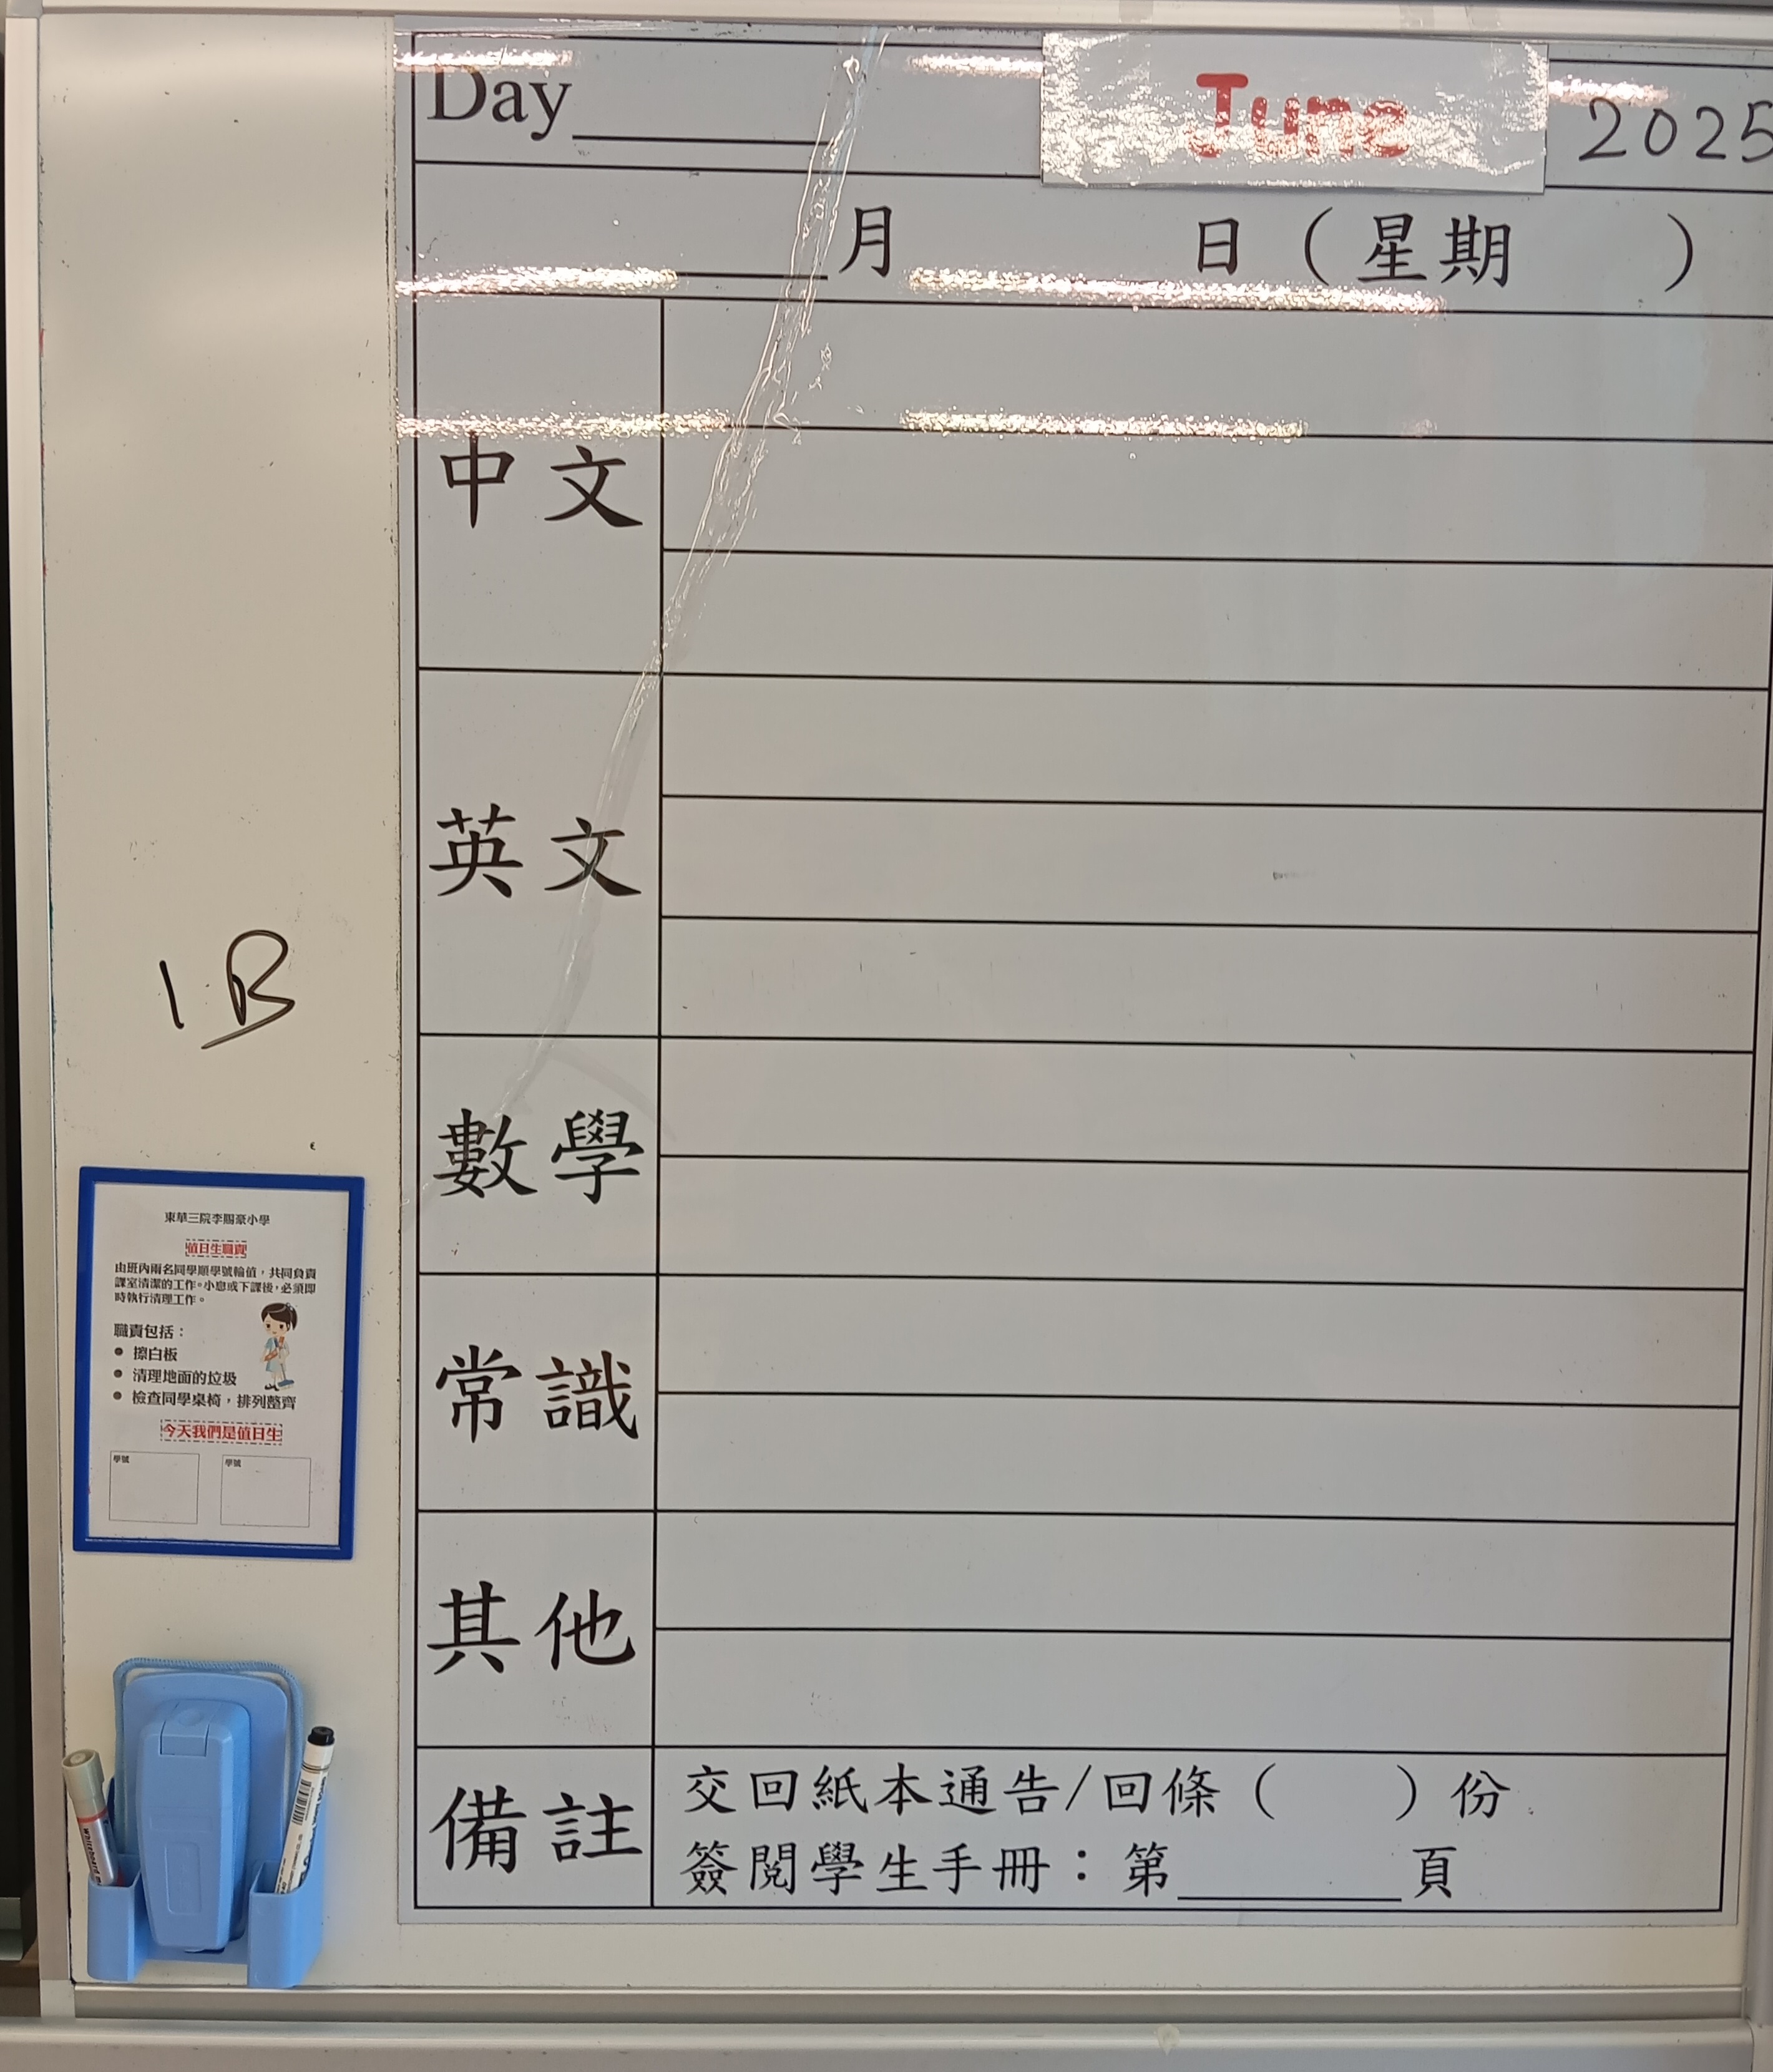 Day June 2025
月 日（星期 ）
中文
英文
1B
數學
常識
其他
備註
交回紙本通告/回條（ ）份
簽閱學生手冊：第______頁
東華三院李賜豪小學
值日生職責
由班內兩名同學順學號輪值，共同負責
課室清潔的工作。小息或下課後，必須即
時執行清理工作。
職責包括：
● 擦白板
● 清理地面的垃圾
● 檢查同學桌椅，排列整齊
今天我們是值日生
學號 學號
Whiteboard